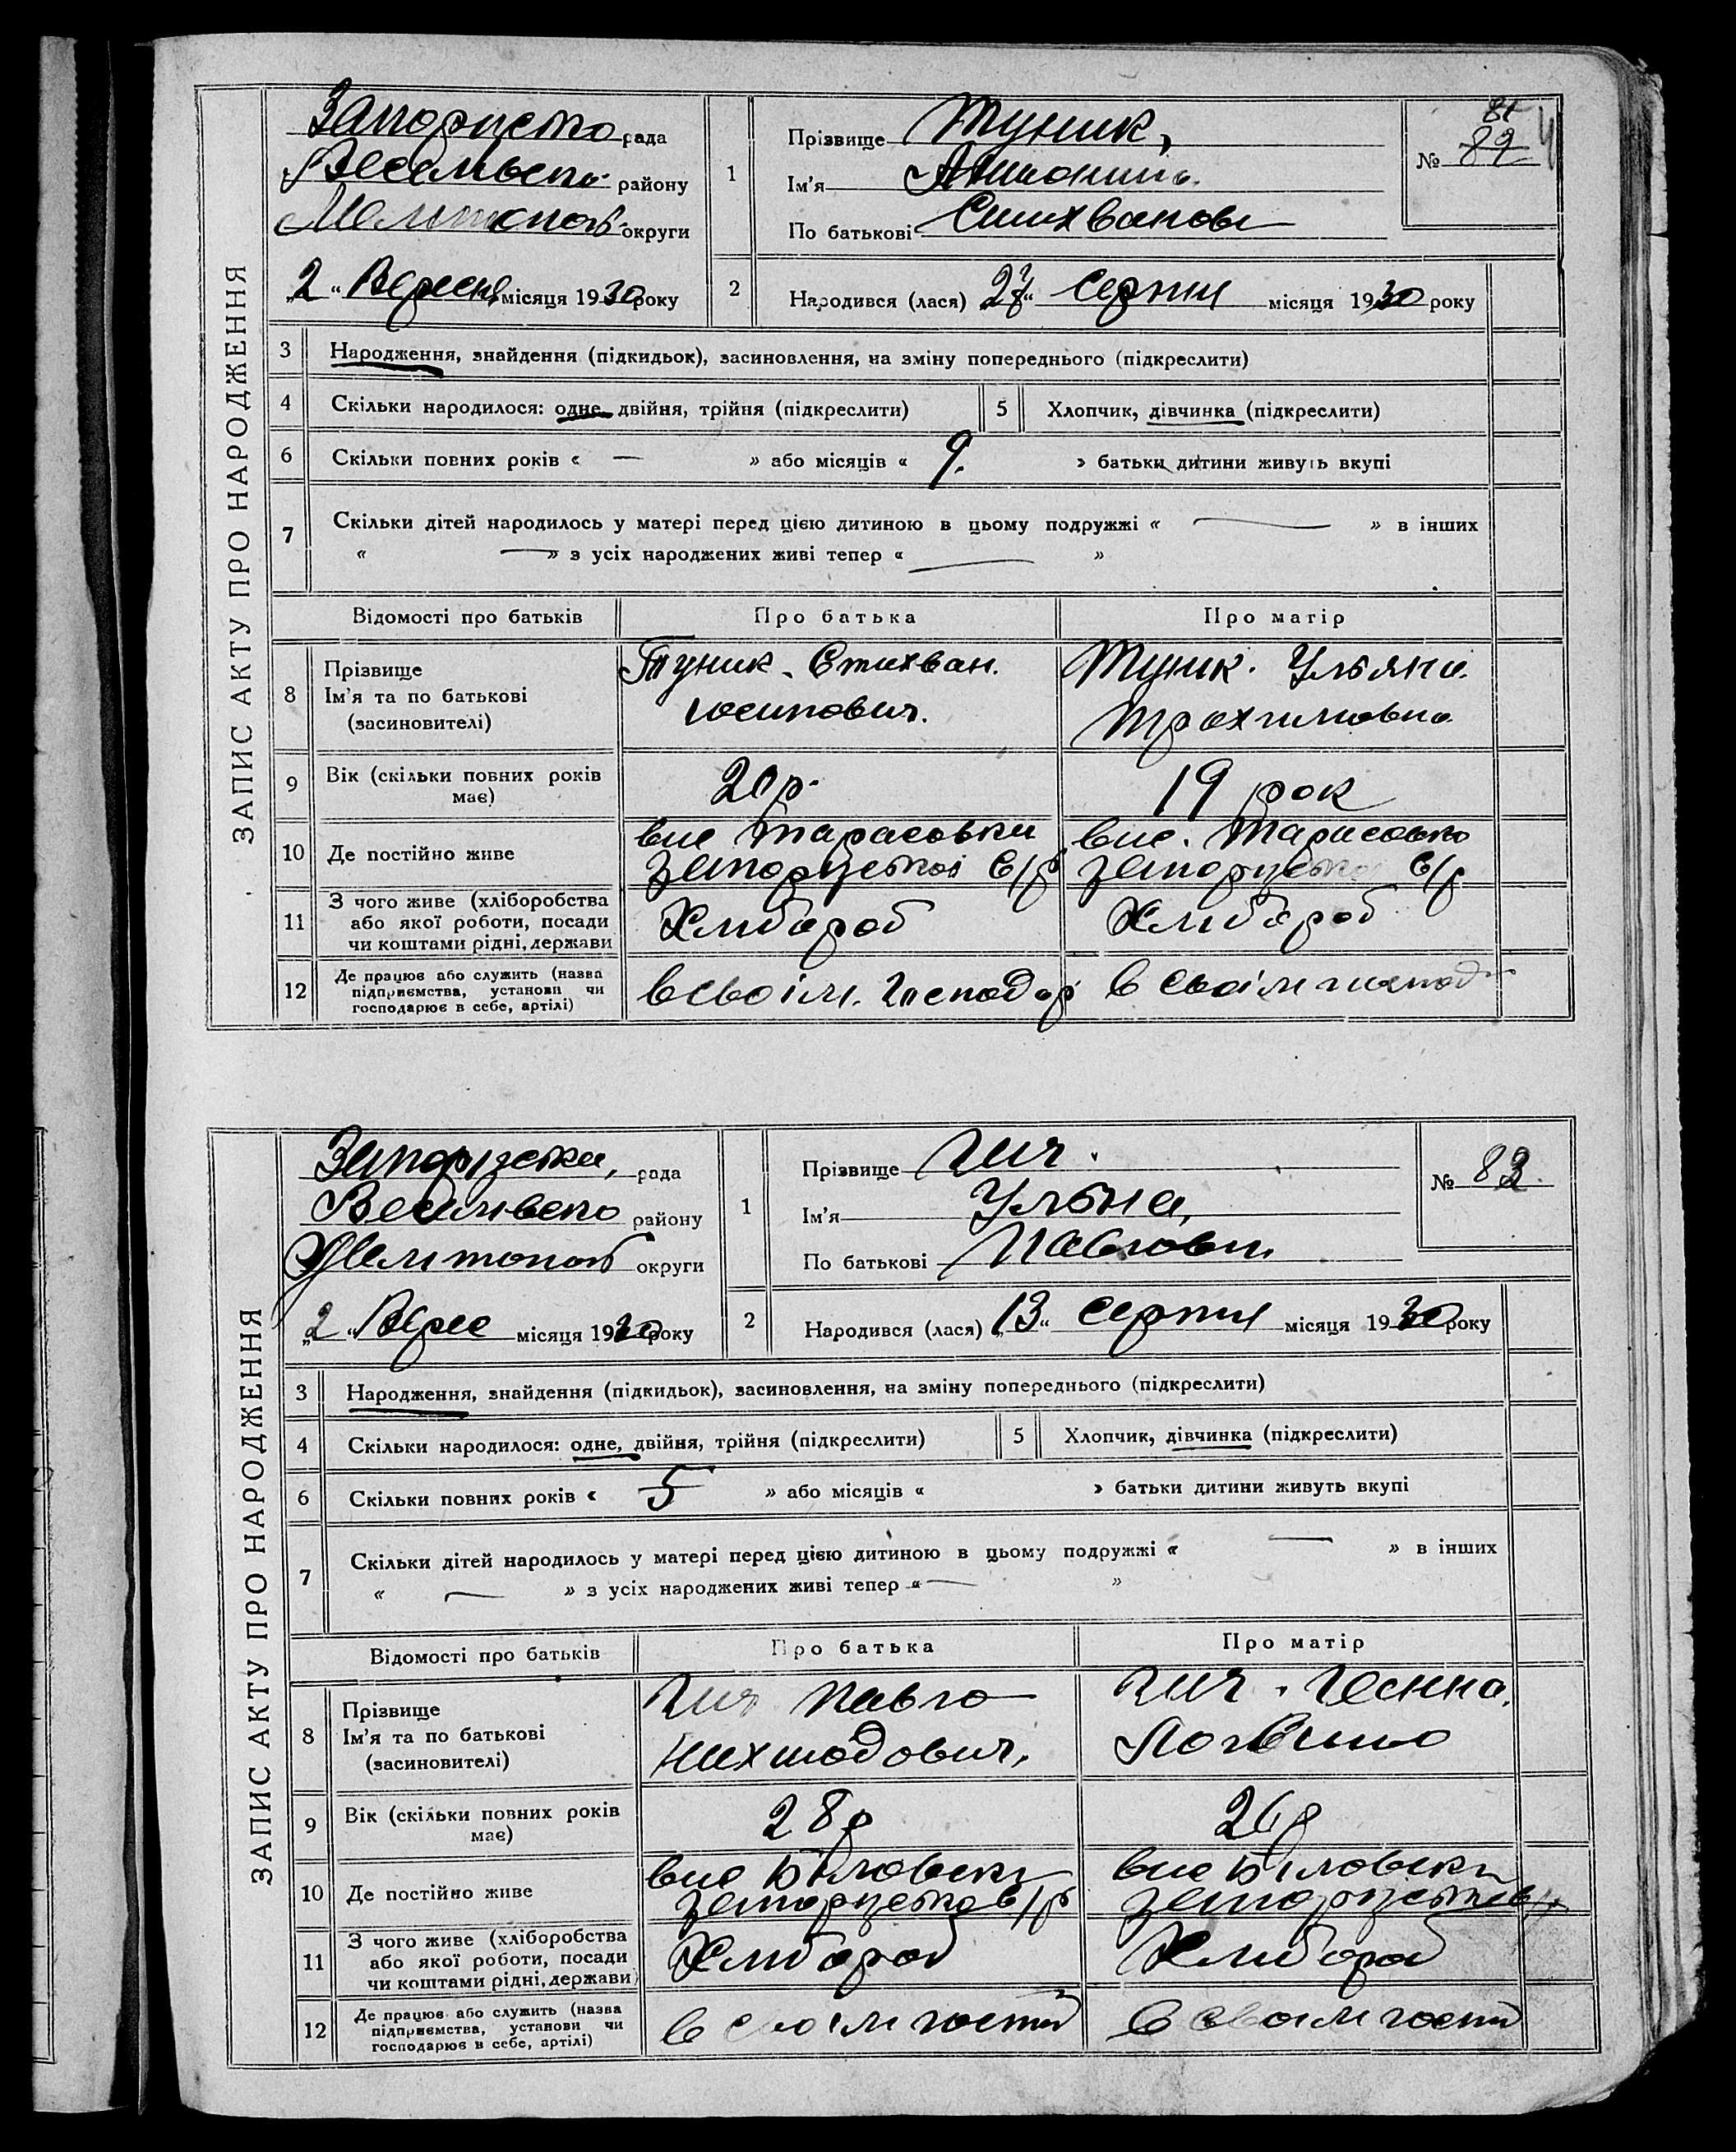 ЗАПИС АКТУ ПРО НАРОДЖЕННЯ
рада
району
округи
„2“ Вересня місяця 1930 року
1
Прізвище Туник,
Ім'я
По батькові
№ 82
2
Народився (лася) серпня місяця 1930 року
3 Народження, знайдення (підкидьок), засиновлення, на зміну попереднього (підкреслити)
4 Скільки народилося: одне, двійня, трійня (підкреслити)
5 Хлопчик, дівчинка (підкреслити)
6 Скільки повних років « — » або місяців « 9. » батьки дитини живуть вкупі
7 Скільки дітей народилось у матері перед цією дитиною в цьому подружжі « — » в інших
« — » з усіх народжених живі тепер « — »
Відомості про батьків Про батька Про матір
8 Прізвище
Ім'я та по батькові
(засиновителі)
Туник Стихван.
юсипович.
Туник. Уляна.
Трохимовна
9 Вік (скільки повних років має)
20 р.
19 рок
10 Де постійно живе
вис Тарасовка
с/р
вис. Тарасовка
с/р
11 З чого живе (хліборобства
або якої роботи, посади
чи коштами рідні, держави
Хлибороб
Хлибороб
12 Де працює або служить (назва
підприємства, установи чи
господарює в себе, артілі)
в своім. господар
в своім господ
ЗАПИС АКТУ ПРО НАРОДЖЕННЯ
рада
району
округи
„2“ Верес місяця 1930 року
1
Прізвище Гич.
Ім'я
По батькові Павловна
№ 83
2
Народився (лася) „13“ серпня місяця 1930 року
3 Народження, знайдення (підкидьок), засиновлення, на зміну попереднього (підкреслити)
4 Скільки народилося: одне, двійня, трійня (підкреслити)
5 Хлопчик, дівчинка (підкреслити)
6 Скільки повних років « 5 » або місяців « » батьки дитини живуть вкупі
7 Скільки дітей народилось у матері перед цією дитиною в цьому подружжі « — » в інших
« — » з усіх народжених живі тепер « — »
Відомості про батьків Про батька Про матір
8 Прізвище
Ім'я та по батькові
(засиновителі)
Гич Павло
Гич.
9 Вік (скільки повних років має)
28 р
26 р
10 Де постійно живе
вис
с/р
вис
11 З чого живе (хліборобства
або якої роботи, посади
чи коштами рідні, держави)
Хлибороб
Хлибороб
12 Де працює або служить (назва
підприємства, установи чи
господарює в себе, артілі)
в своім
в своім